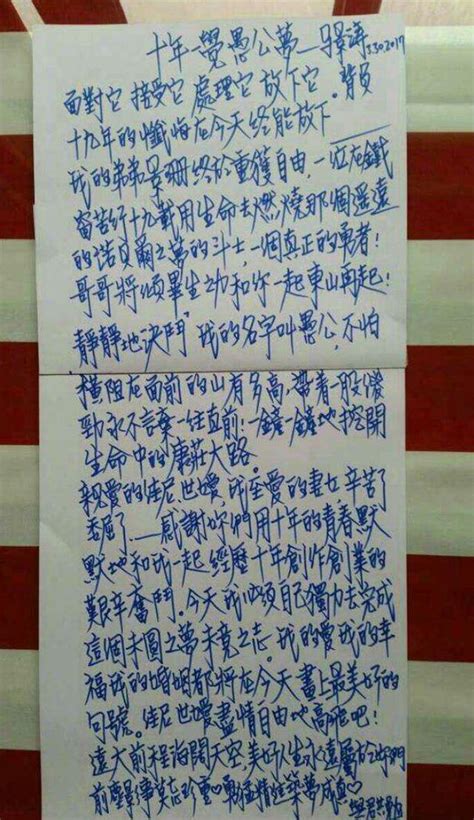 十年一覺愚公夢—马景涛 3.30.2017
面對它 接受它 處理它 放下它。背負
十九年的懺悔在今天终能放下
我的弟弟景珊終於重獲自由，一位在鐵
窗苦行十九載用生命去燃燒那個遥遠
的諾貝爾之夢的斗士，一個真正的勇者！
哥哥將傾畢生之力和你一起東山再起！
靜靜地決鬥 我的名字叫愚公，不怕
橫阻在面前的山有多高，帶着一股傻
勁永不言棄一往直前！一鏟一鏟地挖開
生命中的康莊大路。
親愛的佳尼世嬡，我至愛的妻女，辛苦了
委屈了——感謝你們用十年的青春默
默地和我一起經歷十年創作創業的
艱辛奮鬥。今天我必須自己獨力去完成
這個未圆之夢未竟之志。我的愛我的幸
福我的婚姻都將在今天畫上最美好的
句號。佳尼世嬡盡情自由地高飛吧！
遠大前程海闊天空，美好人生永遠屬於你們
前塵往事莫忘珍重♡勇猛精進築夢成真♡